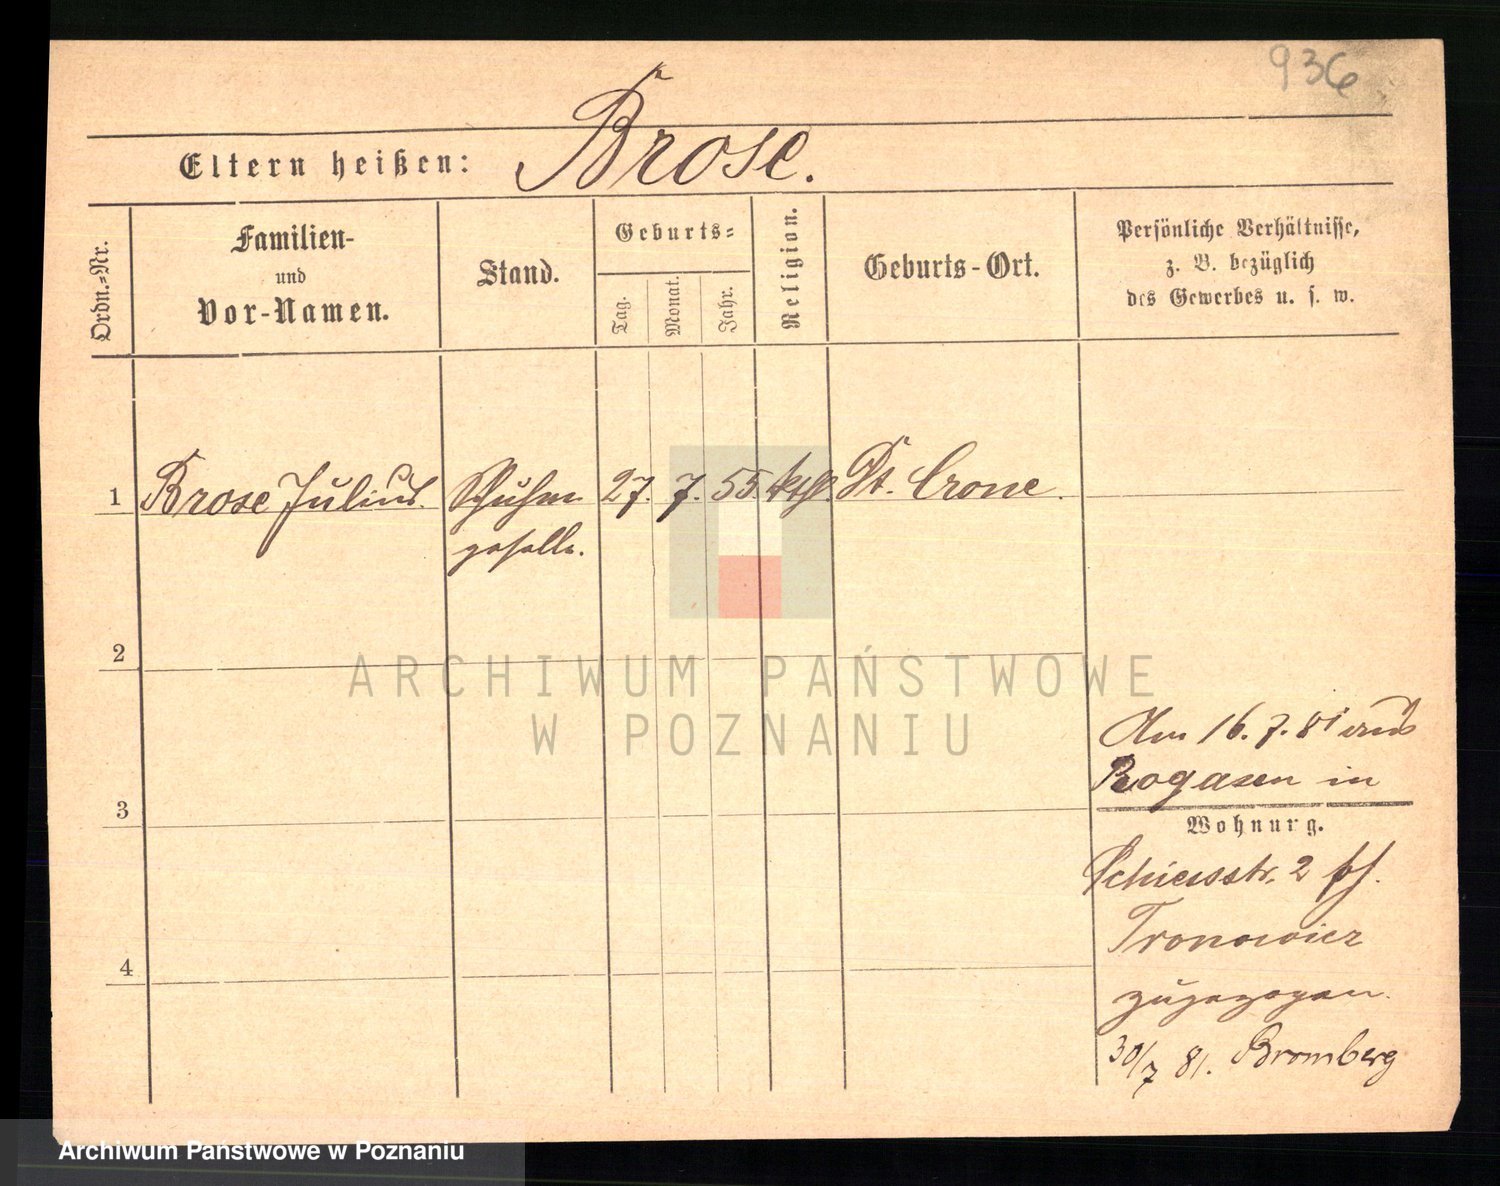 936
Eltern heißen: Brose.
Ordn.-Nr.
Familien-
und
Vor-Namen.
Stand.
Geburts-
Tag.
Monat.
Jahr.
Religion.
Geburts-Ort.
Persönliche Verhältnisse,
z. B. bezüglich
des Gewerbes u. s. w.
1 Brose Julius. Schuhm 27. 7. 55 kthl. Dt. Crone.
geselle.
2
ARCHIWUM PAŃSTWOWE
W POZNANIU
Am 16.7.81 aus
Rogasen in
3
Wohnung.
Schiessstr. 2 bh.
zugezogen.
4
30/7 81. Bromberg
Archiwum Państwowe w Poznaniu